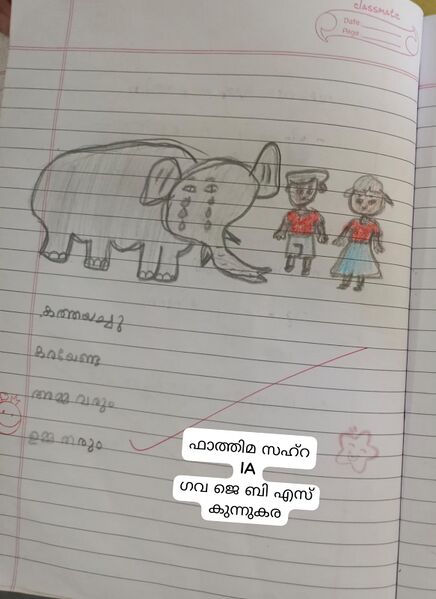 classmate
Date
Page
കത്തയച്ചു
കരയേണ്ട
അമ്മ വരും
ഉമ്മ തരും
ഫാത്തിമ സഹ്റ
IA
ഗവ ജെ ബി എസ്
കുന്നുകര